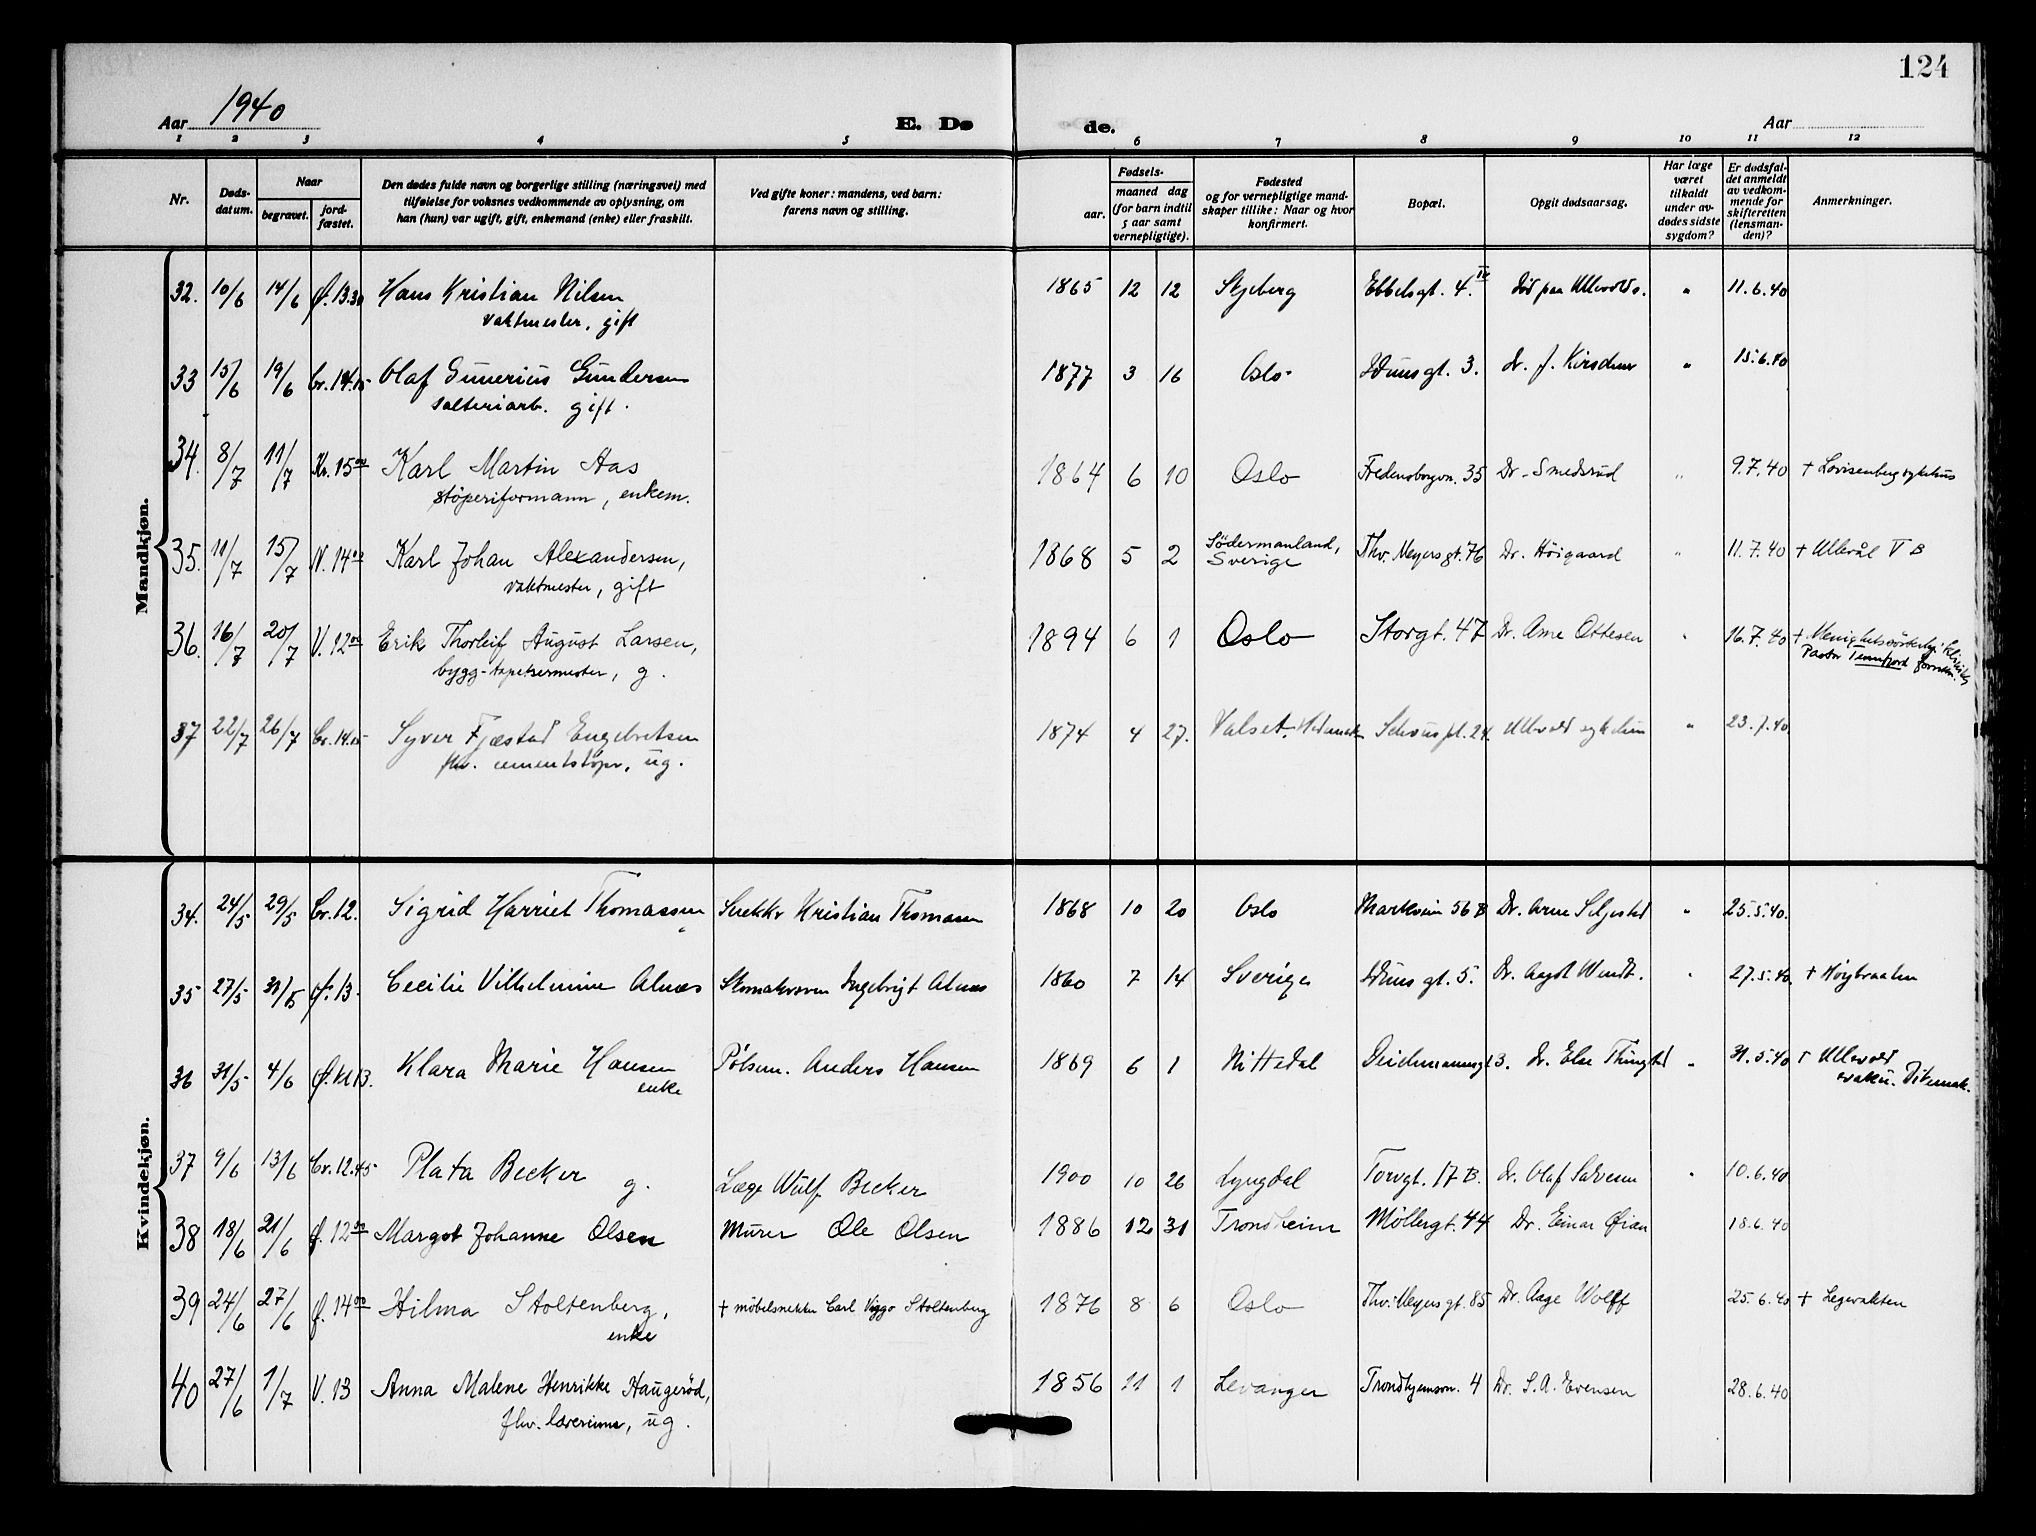 124
Aar 1940
E. Dø de.
Aar
1 2 3 4 5 6 7 8 9 10 11 12
Nr.
Døds-
datum.
Naar
begravet.
jord-
fæstet.
Den dødes fulde navn og borgerlige stilling (næringsvei) med
tilføielse for voksnes vedkommende av oplysning, om
han (hun) var ugift, gift, enkemand (enke) eller fraskilt.
Ved gifte koner: mandens, ved barn:
farens navn og stilling.
Fødsels-
aar.
maaned dag
(for barn indtil
5 aar samt
vernepligtige).
Fødested
og for vernepligtige mand-
skaper tillike: Naar og hvor
konfirmert.
Bopæl.
Opgit dødsaarsag.
Har læge
været
tilkaldt
under av-
dødes sidste
sygdom?
Er dødsfal-
det anmeldt
av vedkom-
mende for
skifteretten
(lensman-
den)?
Anmerkninger.
Mandkjøn.
32. 10/6 14/6 Ø. 13.30 Hans Kristian Nilsen 1865 12 12 Skjeberg Ebbelsgt. 4. IV død paa Ullevold s. " 11.6.40
vaktmester, gift
33 15/6 19/6 Cr. 14.15 Olaf Gunerius Gundersen 1877 3 16 Oslo Idunsgt. 3. Dr. J. " 15.6.40
salteriarb. gift.
34. 8/7 11/7 Kr. 15 00 Karl Martin Aas 1864 6 10 Oslo Fredensborgvn. 35 Dr. Smedsrud " 9.7.40 + Lovisenberg sykehus
støperiformann, enkem.
35. 11/7 15/7 N. 14 00 Karl Johan Alexandersen, 1868 5 2 Södermanland, Sverige Thv. Meyersgt. 76 Dr. Höigaard " 11.7.40 + Ullevål V B
vaktmester, gift
36. 16/7 20/7 V. 12 00 Erik Thorleif August Larsen, 1894 6 1 Oslo Storgt. 47 Dr. Arne Ottesen " 16.7.40 + Menighetssösterhj. klinikk
bygg-tapetsermester, g. Pastor Tennfjord forrettn.
37 22/7 26/7 Cr. 14.15 Syver Fjæstad Engebretsen 1874 4 27. Valset, Hedmark Schous pl. 24. Ullevold sykehus " 23.7.40
fhv. cementstöper, ug.
Kvindekjøn.
34. 24/5 29/5 Cr. 12. Sigrid Harriet Thomassen Snekker Kristian Thomassen 1868 10 20 Oslo Markveien 56 B Dr. Arne Seljestad " 25.5.40.
35 27/5 31/5 Ø. 13. Cecilie Vilhelmine Alnæs Skomakersvenn Ingebrigt Alnæs 1860 7 14 Sverige Idunsgt. 5. Dr. Wendt. " 27.5.40. + Høybraaten
36 31/5 4/6 Ø. kl 13. Klara Marie Hansen Pölsem. Anders Hansen 1869 6 1 Nittedal Deichmannsgt 3. Dr. Else Thingstad " 31.5.40 + Ullevold
enke evaku. Dikemark.
37 9/6 13/6 Cr. 12.45 Plata Becker g. Læge Wulf Becker 1900 10 26 Lyngdal Torvgt. 17 B. Dr. Olaf Salvesen " 10.6.40
38 18/6 21/6 Ø. 12 50 Margot Johanne Olsen Murer Ole Olsen 1886 12 31 Trondheim Möllergt. 44 Dr. Einar Øien 18.6.40
39 24/6 27/6 Ø. 14 00 Hilma Stoltenberg, + möbelsnekker Carl Viggo Stoltenberg 1876 8 6 Oslo Thv. Meyersgt. 85 Dr. Aage Wolff 25.6.40 + Legevakten
enke
40 27/6 1/7 V. 13 Anna Malene Henrikke Haugeröd, 1856 11 1 Levanger Trondhjemsvn. 4 Dr. S. A. Evensen 28.6.40
fhv. lærerinne, ug.